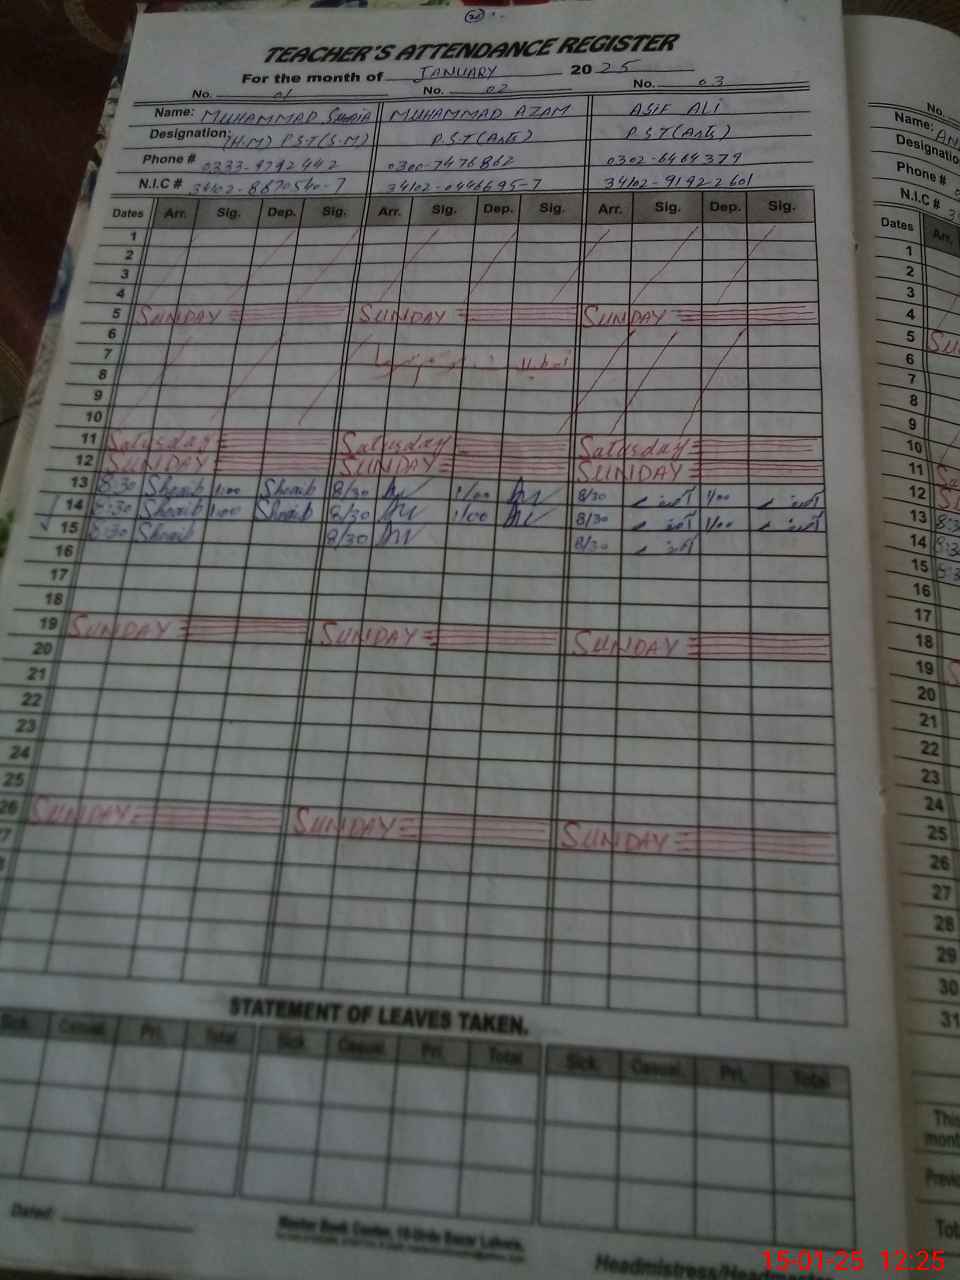 20
TEACHER'S ATTENDANCE REGISTER
For the month of JANUARY 2025
No. 01 No. 02 No. 03 No.
Name: MUHAMMAD MUHAMMAD AZAM ASIF ALI Name:
Designation: (H.M) P.S.T (S.M) P.S.T (Arts) P.S.T (Arts) Designatio
Phone # 0333-9792442 0300-7476862 0302-6464379 Phone #
N.I.C # 34102-8670540-7 34102-0446695-7 34102-91922601 N.I.C #
Dates Arr. Sig. Dep. Sig. Arr. Sig. Dep. Sig. Arr. Sig. Dep. Sig. Dates Arr.
1 1
2 2
3 3
4 4
5 SUNDAY SUNDAY SUNDAY 5
6 6
7 7
8 8
9 9
10 10
11 Saturday Saturday Saturday 11
12 SUNDAY SUNDAY SUNDAY 12
13 8:30 Shoaib 1:00 Shoaib 8/30 1/00 8/30 1/00 13
14 8:30 Shoaib 1:00 Shoaib 8/30 1/00 8/30 1/00 14
15 8:30 Shoaib 8/30 8/30 15
16 16
17 17
18 18
19 SUNDAY SUNDAY SUNDAY 19
20 20
21 21
22 22
23 23
24 24
25 25
26 SUNDAY SUNDAY SUNDAY 26
27
28
29
30
31
STATEMENT OF LEAVES TAKEN.
Sick. Casual. Pri. Total Sick. Casual. Pri. Total Sick. Casual. Pri. Total
This
mont
Previo
Tot
Dated:
Master Book Center, 10-Urdu Bazar Lahore.
Headmistress/Headmaste
15-01-25 12:25